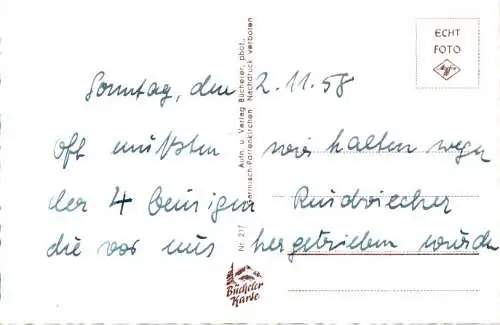 ECHT
FOTO
Agfa
Sonntag, den 2.11.58
Oft mußten wir halten wegen
der 4 beinigen Rindviecher
die vor uns hergetrieben wurden
Aufn. u. Verlag Bücheler, phot.
Garmisch-Partenkirchen Nachdruck verboten
Nr. 217
Bücheler
Karte